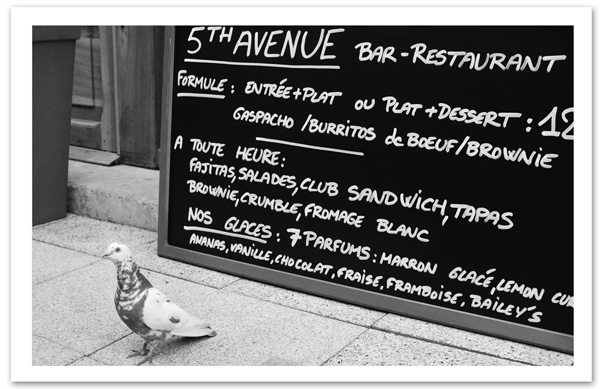 5TH AVENUE BAR-RESTAURANT
FORMULE: ENTRÉE+PLAT OU PLAT+DESSERT: 12
GASPACHO/BURRITOS de BOEUF/BROWNIE
A TOUTE HEURE:
FAJITAS, SALADES, CLUB SANDWICH, TAPAS
BROWNIE, CRUMBLE, FROMAGE BLANC
NOS GLACES: 7 PARFUMS: MARRON GLACÉ, LEMON CUR
ANANAS, VANILLE, CHOCOLAT, FRAISE, FRAMBOISE, BAILEY'S